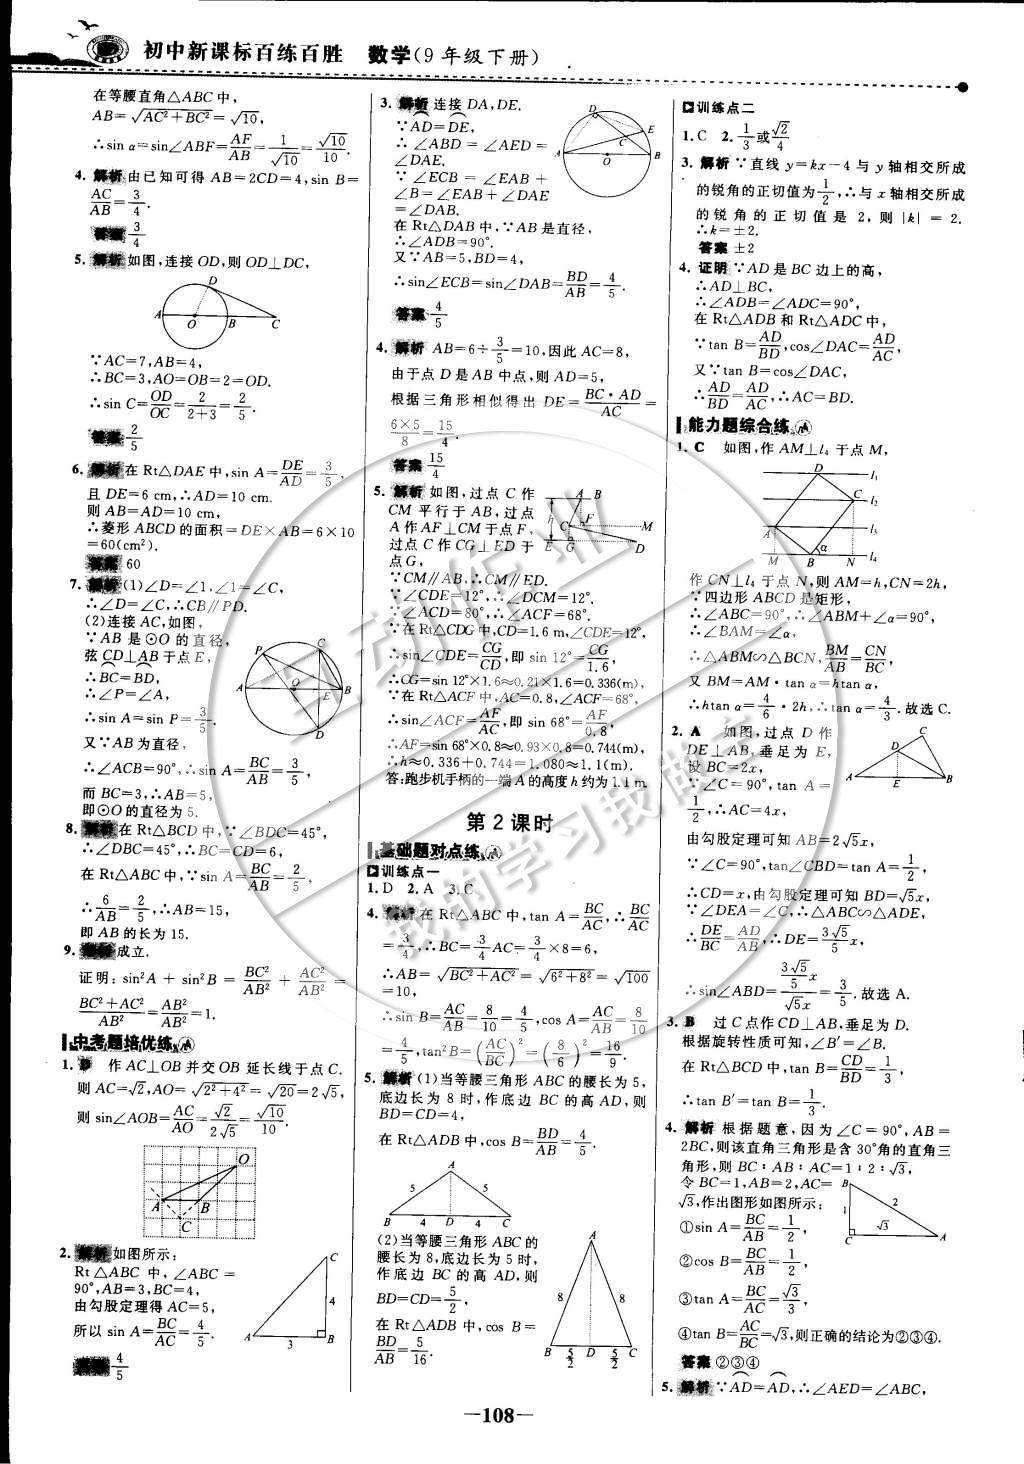 初中新课标百练百胜 数学(9年级下册)
在等腰直角△ABC中,
AB=√(AC²+BC²)=√10,
∴sin α=sin∠ABF=AF/AB=1/√10=√10/10.
4. 解析 由已知可得AB=2CD=4,sin B=
AC/AB=3/4.
答案 3/4
5. 解析 如图,连接OD,则OD⊥DC,
D
A O B C
∵AC=7,AB=4,
∴BC=3,AO=OB=2=OD.
∴sin C=OD/OC=2/(2+3)=2/5.
答案 2/5
6. 解析 在Rt△DAE中,sin A=DE/AD=3/5,
且DE=6 cm,∴AD=10 cm.
则AB=AD=10 cm,
∴菱形ABCD的面积=DE×AB=6×10
=60(cm²).
答案 60
7. 解析 (1)∠D=∠1,∠1=∠C,
∴∠D=∠C,∴CB∥PD.
(2)连接AC,如图,
∵AB是⊙O的直径,
弦CD⊥AB于点E,
∴BC=BD,
∴∠P=∠A,
∴sin A=sin P=3/5.
P C
A O E B
D
又∵AB为直径,
∴∠ACB=90°,∴sin A=BC/AB=3/5,
而BC=3,∴AB=5,
即⊙O的直径为5.
8. 解析 在Rt△BCD中,∵∠BDC=45°,
∴∠DBC=45°,∴BC=CD=6,
在Rt△ABC中,∵sin A=BC/AB=2/5,
∴6/AB=2/5,∴AB=15,
即AB的长为15.
9. 解析 成立.
证明:sin²A+sin²B=BC²/AB²+AC²/AB²=
(BC²+AC²)/AB²=AB²/AB²=1.
中考题培优练 A
1. D 作AC⊥OB并交OB延长线于点C.
则AC=√2,AO=√(2²+4²)=√20=2√5,
则sin∠AOB=AC/AO=√2/(2√5)=√10/10.
O
A B
C
2. 解析 如图所示:
Rt△ABC中,∠ABC=
90°,AB=3,BC=4,
由勾股定理得AC=5,
所以sin A=BC/AC=4/5.
答案 4/5
C
4
A 3 B
3. 解析 连接DA,DE.
∵AD=DE,
∴∠ABD=∠AED=
∠DAE.
∵∠ECB=∠EAB+
∠B=∠EAB+∠DAE
=∠DAB.
D
E
C
A O B
在Rt△DAB中,∵AB是直径,
∴∠ADB=90°.
又∵AB=5,BD=4,
∴sin∠ECB=sin∠DAB=BD/AB=4/5.
答案 4/5
4. 解析 AB=6÷3/5=10,因此AC=8,
由于点D是AB中点,则AD=5,
根据三角形相似得出DE=(BC·AD)/AC=
(6×5)/8=15/4.
答案 15/4
5. 解析 如图,过点C作
CM平行于AB,过点
A作AF⊥CM于点F,
过点C作CG⊥ED于
点G,
A B
C F M
E G D
∵CM∥AB,∴CM∥ED.
∵∠CDE=12°,∴∠DCM=12°.
∵∠ACD=80°,∴∠ACF=68°.
∵在Rt△CDG中,CD=1.6 m,∠CDE=12°,
∴sin∠CDE=CG/CD,即sin 12°=CG/1.6,
∴CG=sin 12°×1.6≈0.21×1.6=0.336(m),
∵在Rt△ACF中,AC=0.8,∠ACF=68°,
∴sin∠ACF=AF/AC,即sin 68°=AF/0.8,
∴AF=sin 68°×0.8≈0.93×0.8=0.744(m),
∴h≈0.336+0.744=1.080≈1.1(m).
答:跑步机手柄的一端A的高度h约为1.1 m.
第2课时
基础题对点练 A
训练点一
1. D 2. A 3. C
4. 解析 在Rt△ABC中,tan A=BC/AC,∴BC/AC
=3/4,∴BC=3/4AC=3/4×8=6,
∴AB=√(BC²+AC²)=√(6²+8²)=√100
=10,
∴sin B=AC/AB=8/10=4/5,cos A=AC/AB=8/10
=4/5,tan²B=(AC/BC)²=(8/6)²=16/9.
5. 解析 (1)当等腰三角形ABC的腰长为5,
底边长为8时,作底边BC的高AD,则
BD=CD=4,
在Rt△ADB中,cos B=BD/AB=4/5.
A
5 5
B 4 D 4 C
(2)当等腰三角形ABC的
腰长为8,底边长为5时,
作底边BC的高AD,则
BD=CD=5/2,
在Rt△ADB中,cos B=
BD/AB=5/16.
A
8 8
B 5/2 D 5/2 C
训练点二
1. C 2. 1/3或√2/4
3. 解析 ∵直线y=kx-4与y轴相交所成
的锐角的正切值为1/2,∴与x轴相交所成
的锐角的正切值是2,则|k|=2.
∴k=±2.
答案 ±2
4. 证明 ∵AD是BC边上的高,
∴AD⊥BC,
∴∠ADB=∠ADC=90°,
在Rt△ADB和Rt△ADC中,
∵tan B=AD/BD,cos∠DAC=AD/AC,
又∵tan B=cos∠DAC,
∴AD/BD=AD/AC,∴AC=BD.
能力题综合练 A
1. C 如图,作AM⊥l₄于点M,
D l₁
C l₂
A l₃
M B α N l₄
作CN⊥l₄于点N,则AM=h,CN=2h,
∵四边形ABCD是矩形,
∴∠ABC=90°,∴∠ABM+∠α=90°,
∴∠BAM=∠α,
∴△ABM∽△BCN,BM/AB=CN/BC,
又BM=AM·tan α=htan α,
∴htan α=4/6·2h,∴tan α=4/3.故选C.
2. A 如图,过点D作
DE⊥AB,垂足为E,
设BC=2x,
∵∠C=90°,tan A=
1/2,∴AC=4x,
C
D
A E B
由勾股定理可知AB=2√5x,
∵∠C=90°,tan∠CBD=tan A=1/2,
∴CD=x,由勾股定理可知BD=√5x,
∵∠DEA=∠C,∴△ABC∽△ADE,
∴DE/BC=AD/AB,∴DE=(3√5/5)x,
∴sin∠ABD=(3√5/5)x/√5x=3/5.故选A.
3. B 过C点作CD⊥AB,垂足为D.
根据旋转性质可知,∠B′=∠B.
在Rt△BCD中,tan B=CD/BD=1/3,
∴tan B′=tan B=1/3.
4. 解析 根据题意,因为∠C=90°,AB=
2BC,则该直角三角形是含30°角的直角三
角形,则BC∶AB∶AC=1∶2∶√3,
令BC=1,AB=2,AC=
√3,作出图形如图所示:
①sin A=BC/AB=1/2,
②cos B=BC/AB=1/2,
③tan A=BC/AC=√3/3,
④tan B=AC/BC=√3,则正确的结论为②③④.
B
1 2
√3
C A
答案 ②③④
5. 解析 ∵AD=AD,∴∠AED=∠ABC,
—108—
自动作业
我的学习我做主